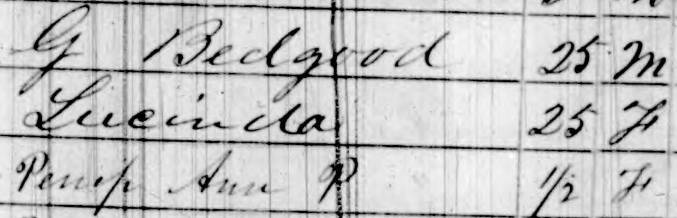 G Bedgood 25 M
Lucinda 25 F
Ann P 1/2 F